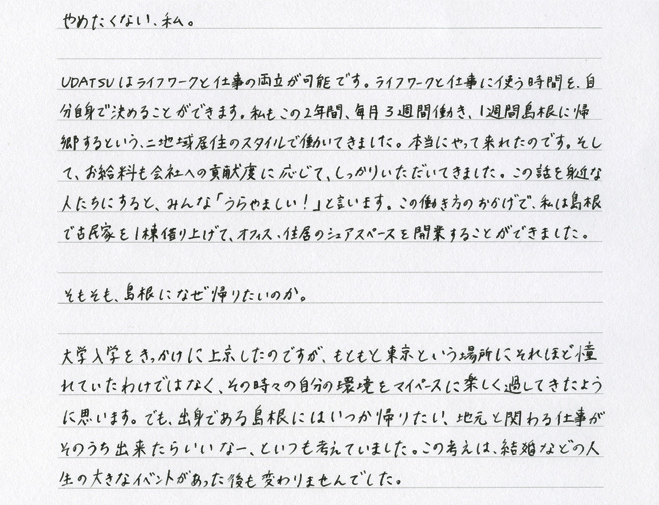 やめたくない、私。
UDATSUはライフワークと仕事の両立が可能です。ライフワークと仕事に使う時間を、自
分自身で決めることができます。私もこの2年間、毎月3週間働き、1週間島根に帰
郷するという、二地域居住のスタイルで働いてきました。本当にやって来れたのです。そし
て、お給料も会社への貢献度に応じて、しっかりいただいてきました。この話を身近な
人たちにすると、みんな「うらやましい！」と言います。この働き方のおかげで、私は島根
で古民家を1棟借り上げて、オフィス・住居のシェアスペースを開業することができました。
そもそも、島根になぜ帰りたいのか。
大学入学をきっかけに上京したのですが、もともと東京という場所にそれほど憧
れていたわけではなく、その時々の自分の環境をマイペースに楽しく過してきたよう
に思います。でも、出身である島根にはいつか帰りたい、地元と関わる仕事が
そのうち出来たらいいなー、といつも考えていました。この考えは、結婚などの人
生の大きなイベントがあった後も変わりませんでした。